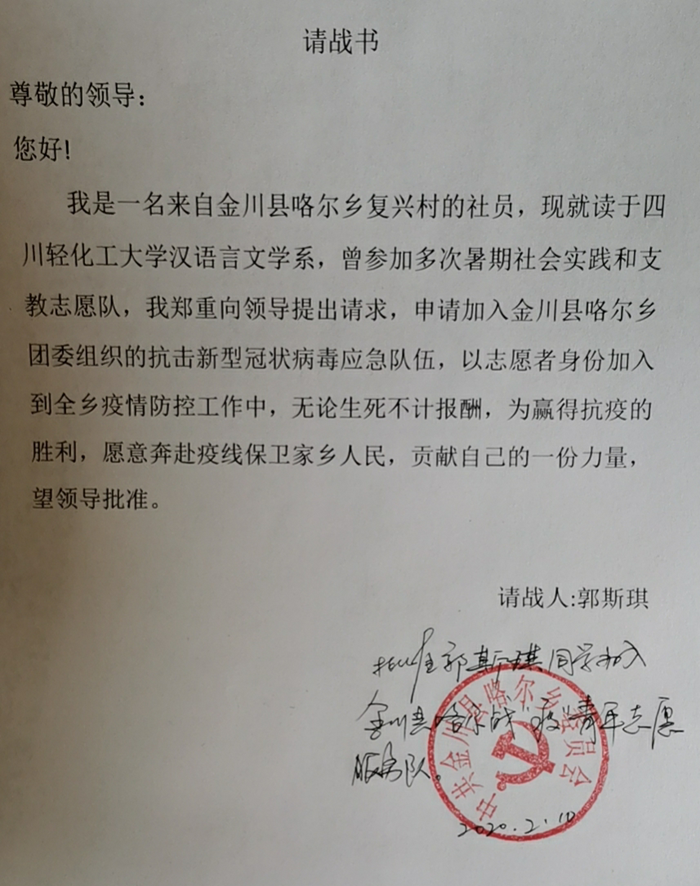 请战书
尊敬的领导：
您好！
我是一名来自金川县咯尔乡复兴村的社员，现就读于四
川轻化工大学汉语言文学系，曾参加多次暑期社会实践和支
教志愿队，我郑重向领导提出请求，申请加入金川县咯尔乡
团委组织的抗击新型冠状病毒应急队伍，以志愿者身份加入
到全乡疫情防控工作中，无论生死不计报酬，为赢得抗疫的
胜利，愿意奔赴疫线保卫家乡人民，贡献自己的一份力量，
望领导批准。
请战人:郭斯琪
批准郭斯琪同学加入
金川县咯尔战“疫”青年志愿
服务队。
中共金川县咯尔乡委员会
2020.2.10